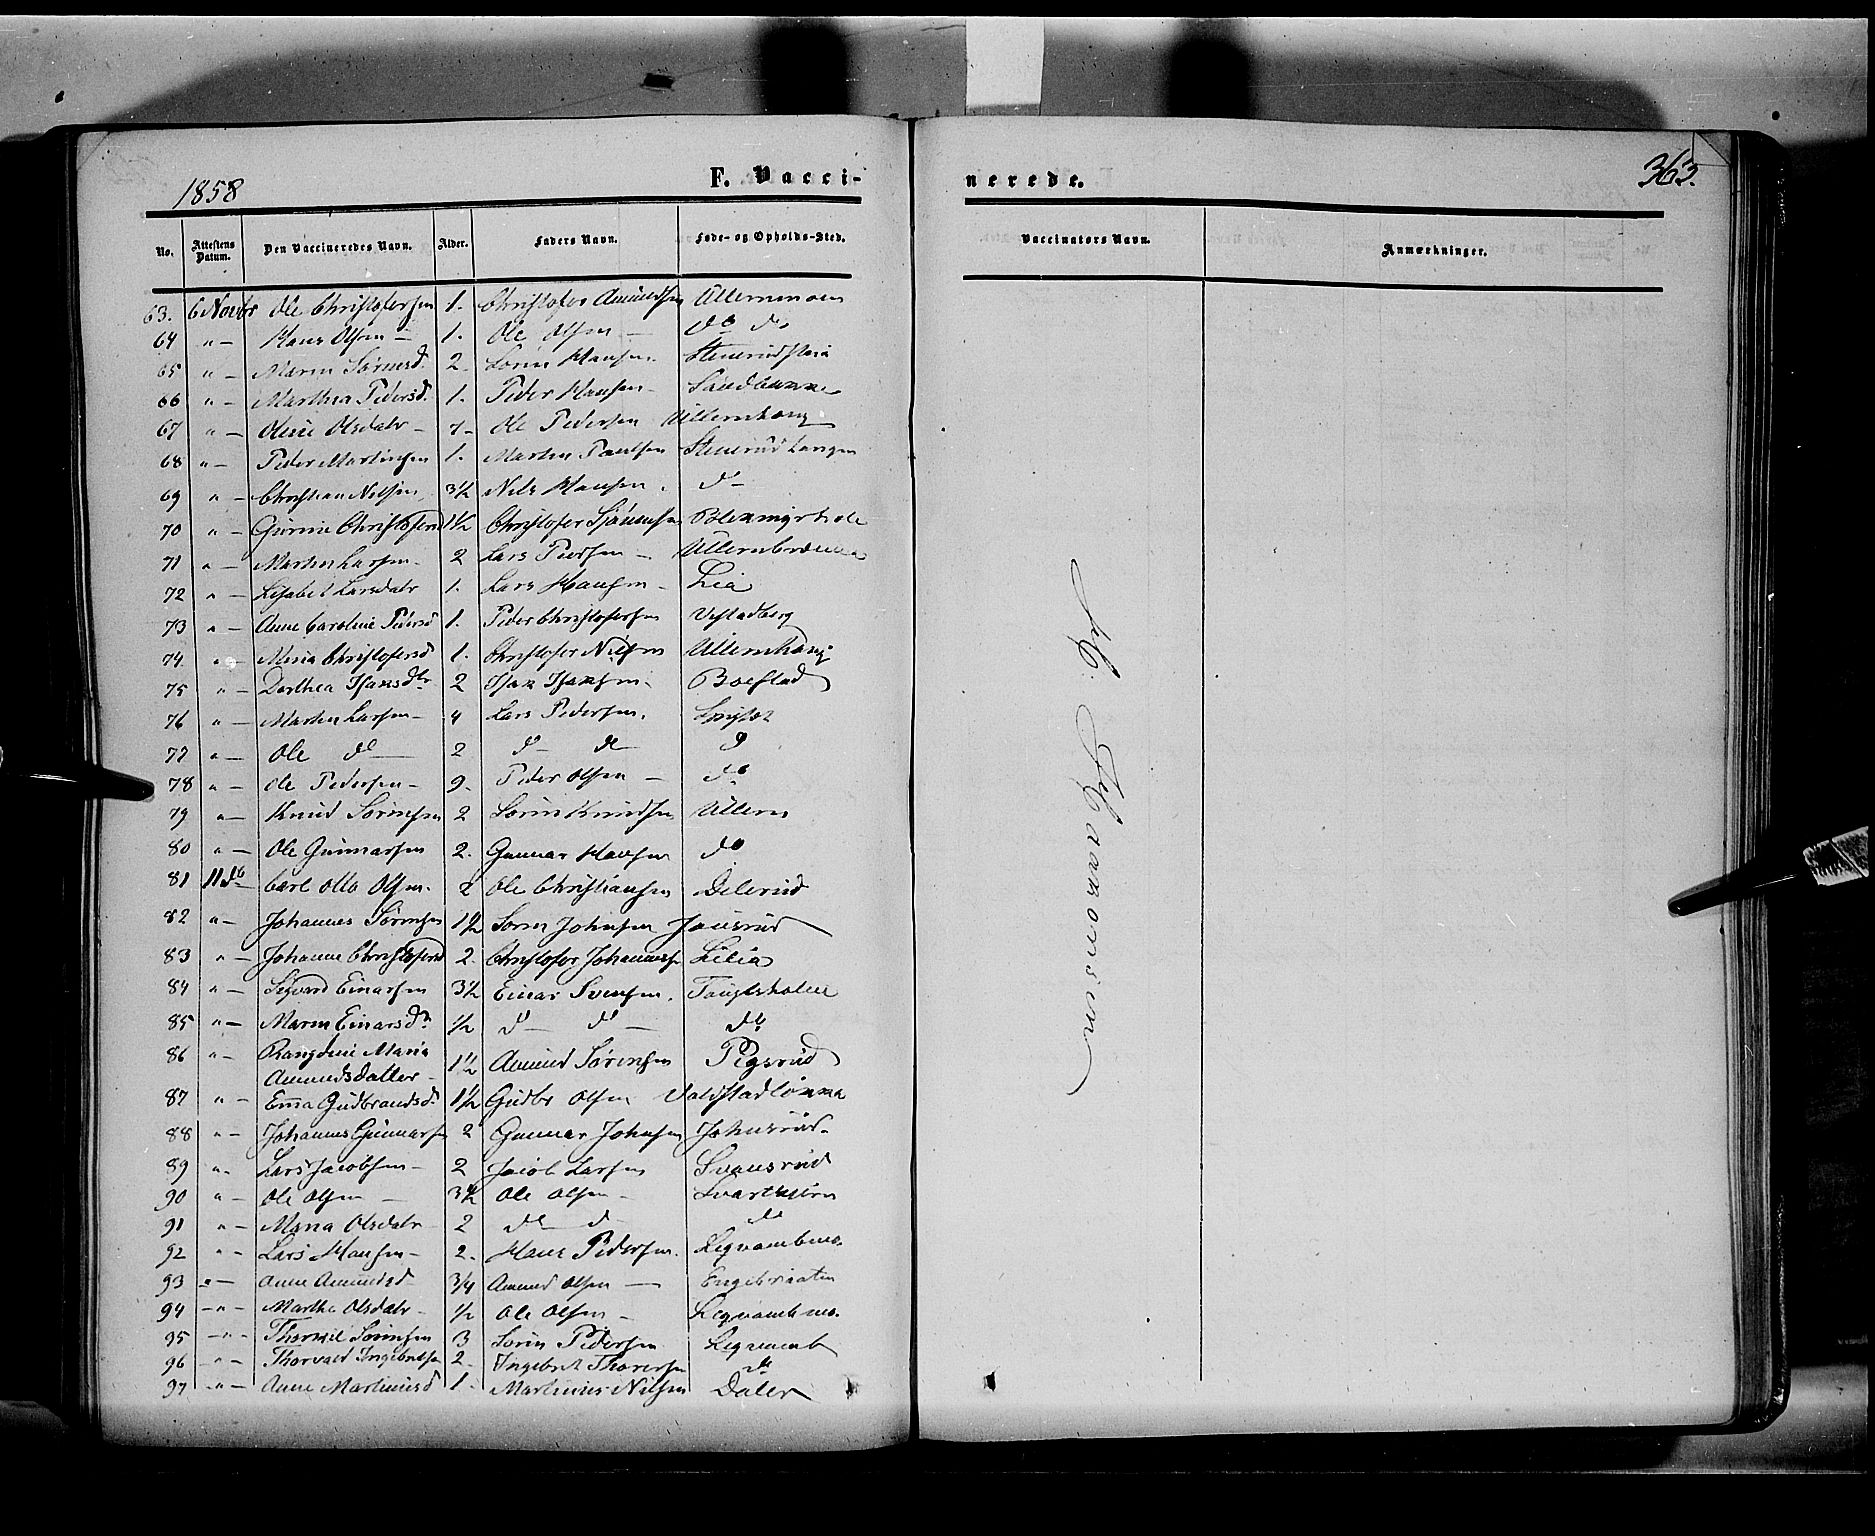 1858
F. Vacci-
nerede.
363.
No. Attestens Datum. Den Vaccineredes Navn. Alder. Faders Navn. Føde- og Opholds-Sted. Vaccinators Navn. Anmærkninger.
63. 6 Novbr Ole Christofersen 1. Christofer Amundsen Ullernmoen
64 " — Hans Olsen — 1. Ole Olsen — do do
65 " — Maren Sørensd. 2. Søren Hansen. Stenerud
66 " — Marthea Pedersd. 1. Peder Hansen — Sandbakken
67 " — Oline Olsdatr — Ole Pedersen Ullernhaug
68 " — Peder Martinsen 1. Martin Paulsen Stenerud
69 " — Christian Nilsen 3½ Nils Hansen. do —
70 " — Christofersd 1½ Christofer
71 " — Martin Larsen — 2 Lars Pedersen — Ullernbrænna
72 " — Lisabet Larsdatr 1. Lars Hansen — Lia
73 " — Anne Caroline Pedersd 1. Peder Christofersen Vestadberg
74. " — Maria Christofersd 1. Christofer Nilsen Ullernhaug
75 " — Dorthea Isaksdr 2 Isak Isaksen. Boestad
76 " — Martin Larsen — 4 Lars Pedersen.
77 " — Ole do — 2 do — do — do
78 " — Ole Pedersen — 9. Peder Olsen — do
79 " — Knud Sørensen 2 Søren Knudsen Ullern
80 " — Ole Gunnarsen 2. Gunnar Hansen do
81 11 do Carl Otto Olsen. 2 Ole Christiansen Delerud
82 " — Johannes Sørensen 1½ Søren Johnsen Jonsrud
83 " — Johanne Christofersd 2. Christofer Johannessen Lilia
84 " — Sigvard Einarsen 3½ Einar Svensen.
85 " — Maren Einarsdr ½ do — do — do
86 " — Rangdine Maria
Amundsdatter — 1½ Amund Sørensen Pigsrud
87 " — Emma Gudbrandsdr 1½ Gudbr Olsen
88 " — Johannes Gunnarsen 2 Gunnar Johnsen Johnsrud.
89 " - Lars Jacobsen — 2 Jacob Larsen Svansrud
90 " — Ole Olsen — 3½ Ole Olsen — Svarttjern
91 " — Maria Olsdatr 2 do — do do
92 " - Lars Hansen — 2. Hans Pedersen. Legvambmo.
93 " — Anne Amundsd 3/4 Amund Olsen — Engebraaten
94 — " — Martha Olsdatr — ½ Ole Olsen — Legvambmo.
95 — " — Sørensen 3 Søren Pedersen Legvamb
96 — " — Thorvald Ingebretsen 2. Ingebret Thoresen do
97 — " — Anne Martinusd 1. Martinus Nilsen Daler